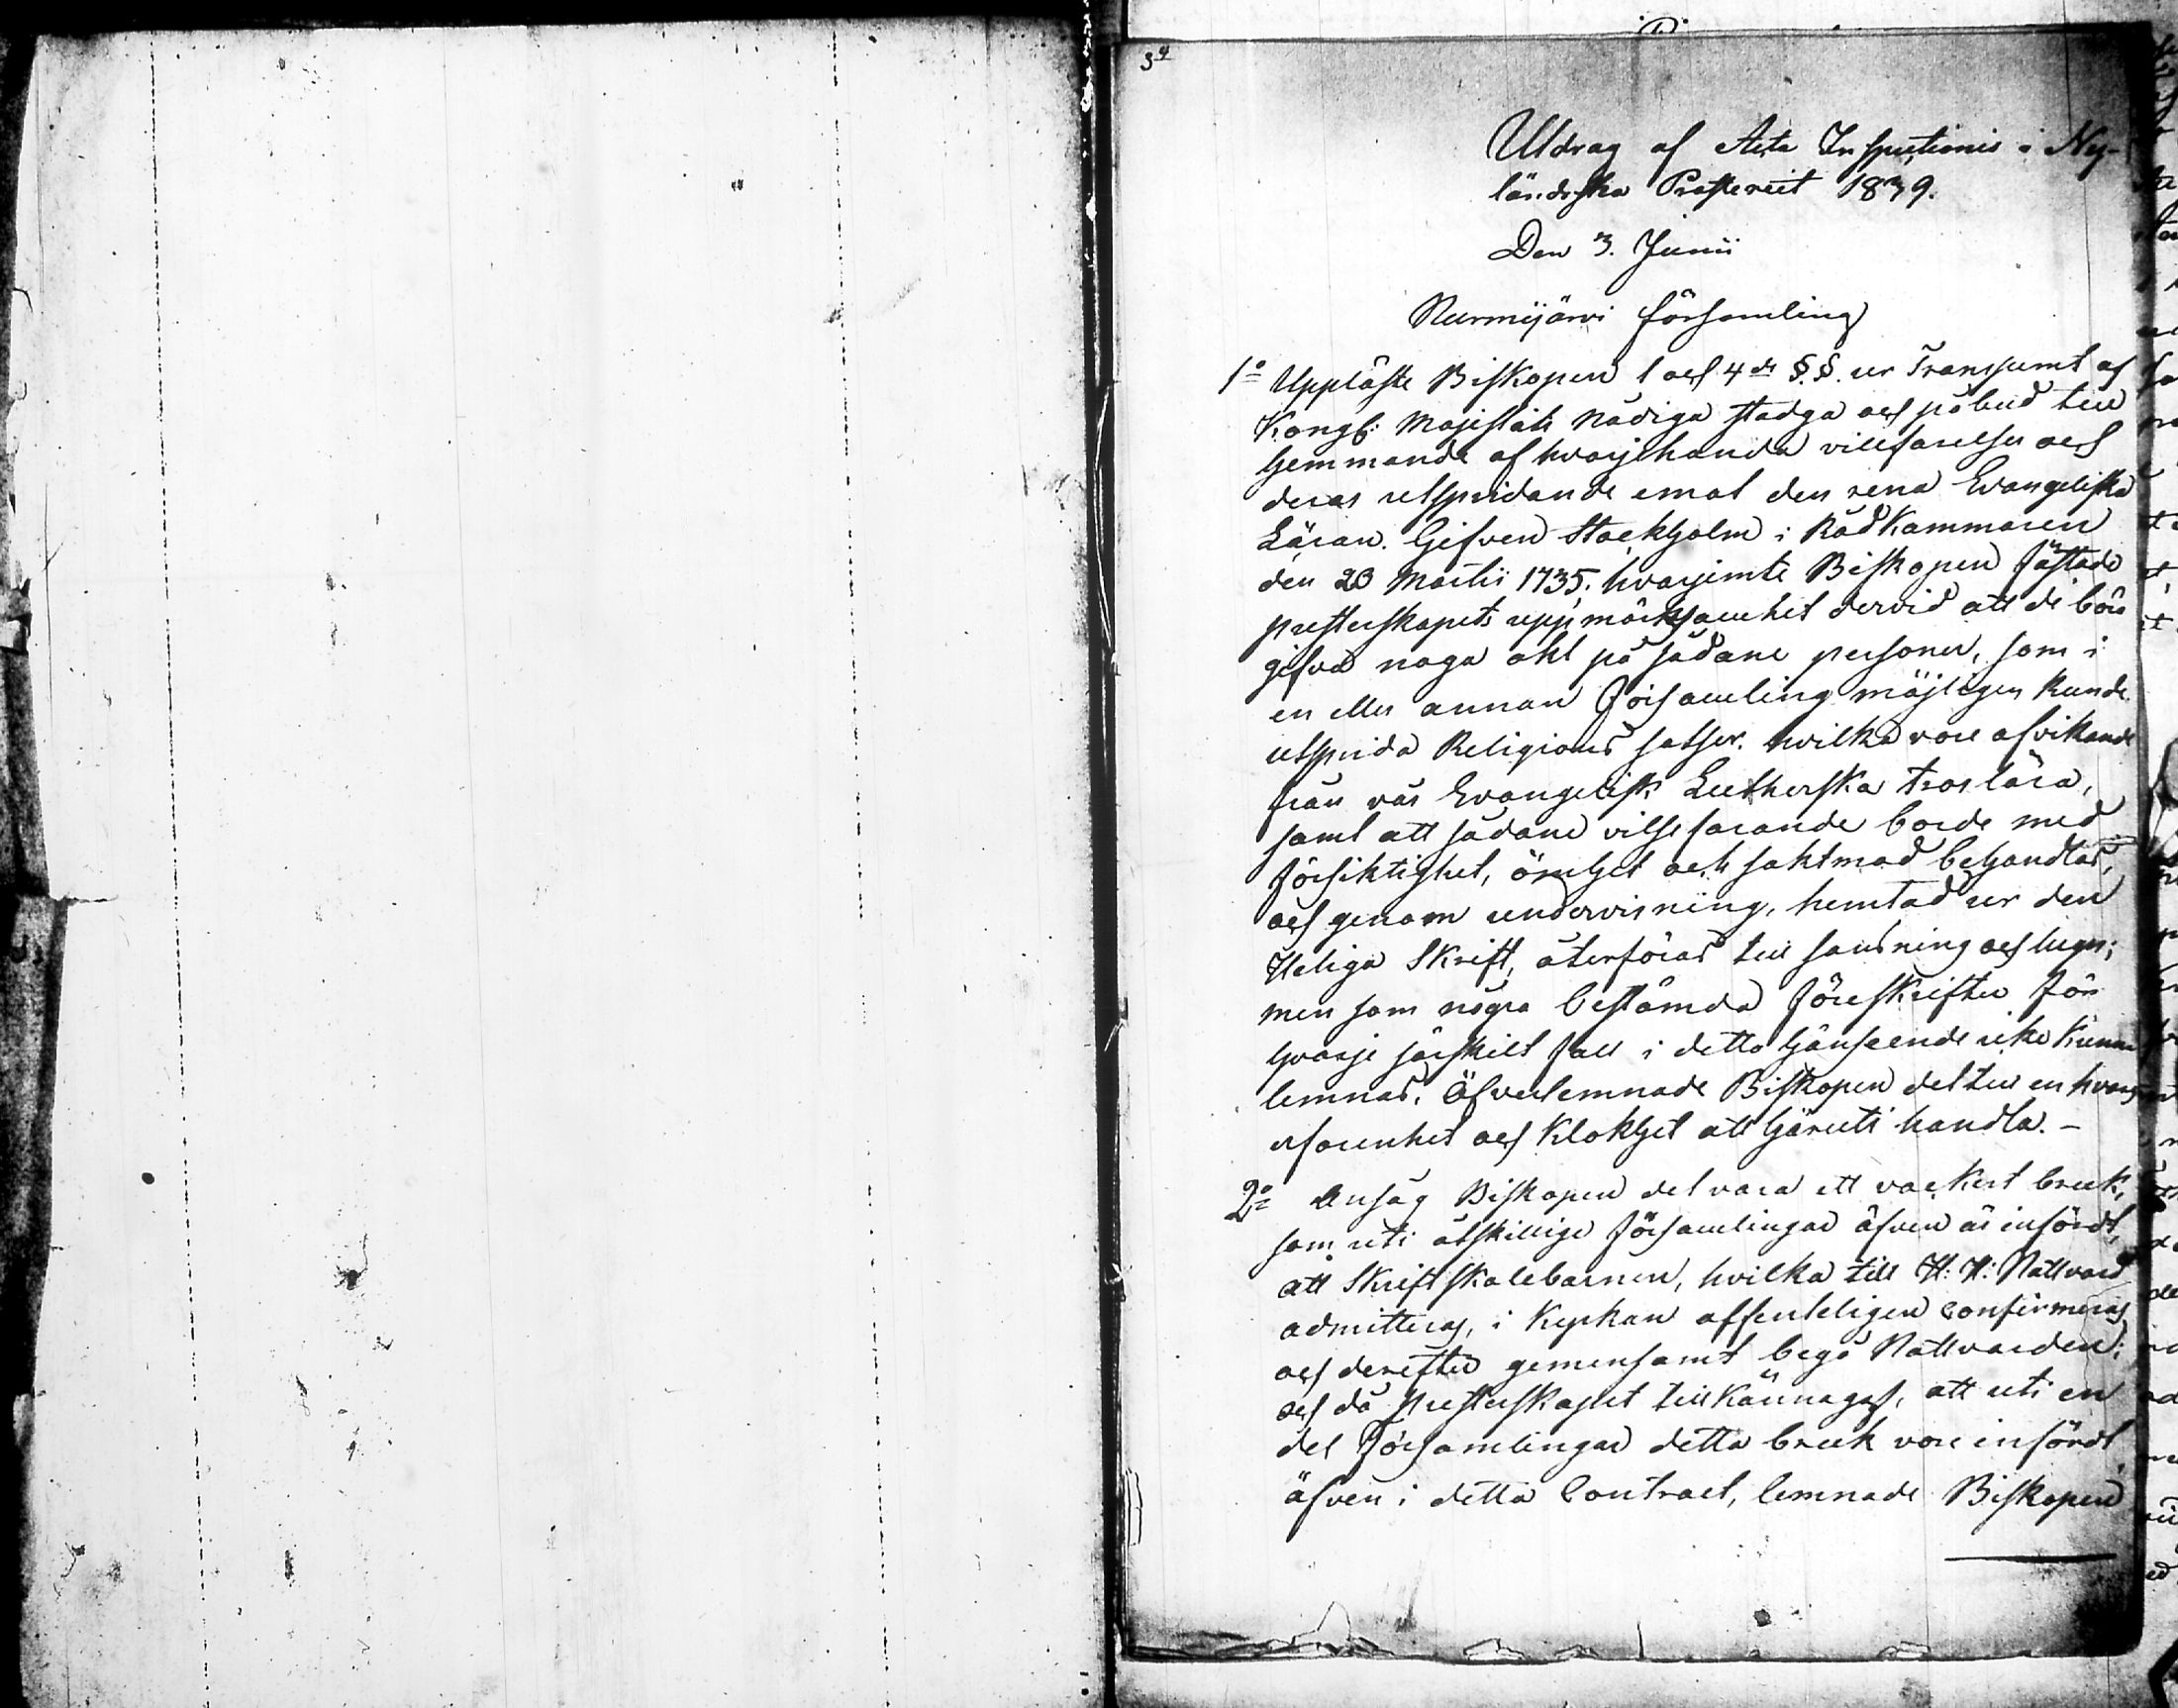 Utdrag af Acta Inspectionis i Ny-
ländska Prosteriet 1839.
Den 3. Junii
Nurmijärvi församling
1o Uppläste Biskopen 1 och 4de §.§. ur Transsumt af
Kongl: Majestäts Nådiga stadga och påbud till
hemmande af hvarjehanda villfarelser och
deras utspridande emot den rena Evangeliska
Läran. Gifven Stockholm i RådKammaren
den 20 Martii 1735. hvarjemte Biskopen fästade
presterskapets uppmärksamhet dervid att de böra
gifva noga akt på sådane personer, som i
en eller annan församling möjligen kunde
utsprida Religions satser. hvilka vore afvikande
från vår Evangelisk Lutherska troslära,
samt att sådane vilsefarande borde med
försiktighet, ömhet och saktmod behandlas,
och genom undervisning, hemtad ur den
Heliga Skrift, återföras till sansning och lugn;
men som några bestämda föreskrifter för
hvarje särskilt fall i detta hänseende icke kunna
lemnas, öfverlemnade Biskopen det till en hvars
erfarenhet och Klokhet att häruti handla. –
2o Ansåg Biskopen det vara ett vackert bruk,
som uti åtskillige församlingar äfven är infördt,
att Skriftskolebarnen, hvilka till H: H: Nattvard
admitteras, i Kyrkan offentligen confirmeras
och derefter gemensamt begå Nattvarden;
och då presterskapet tillkännagaf, att uti en
del församlingar detta bruk vore infördt
äfven i detta Contract, lemnade Biskopen